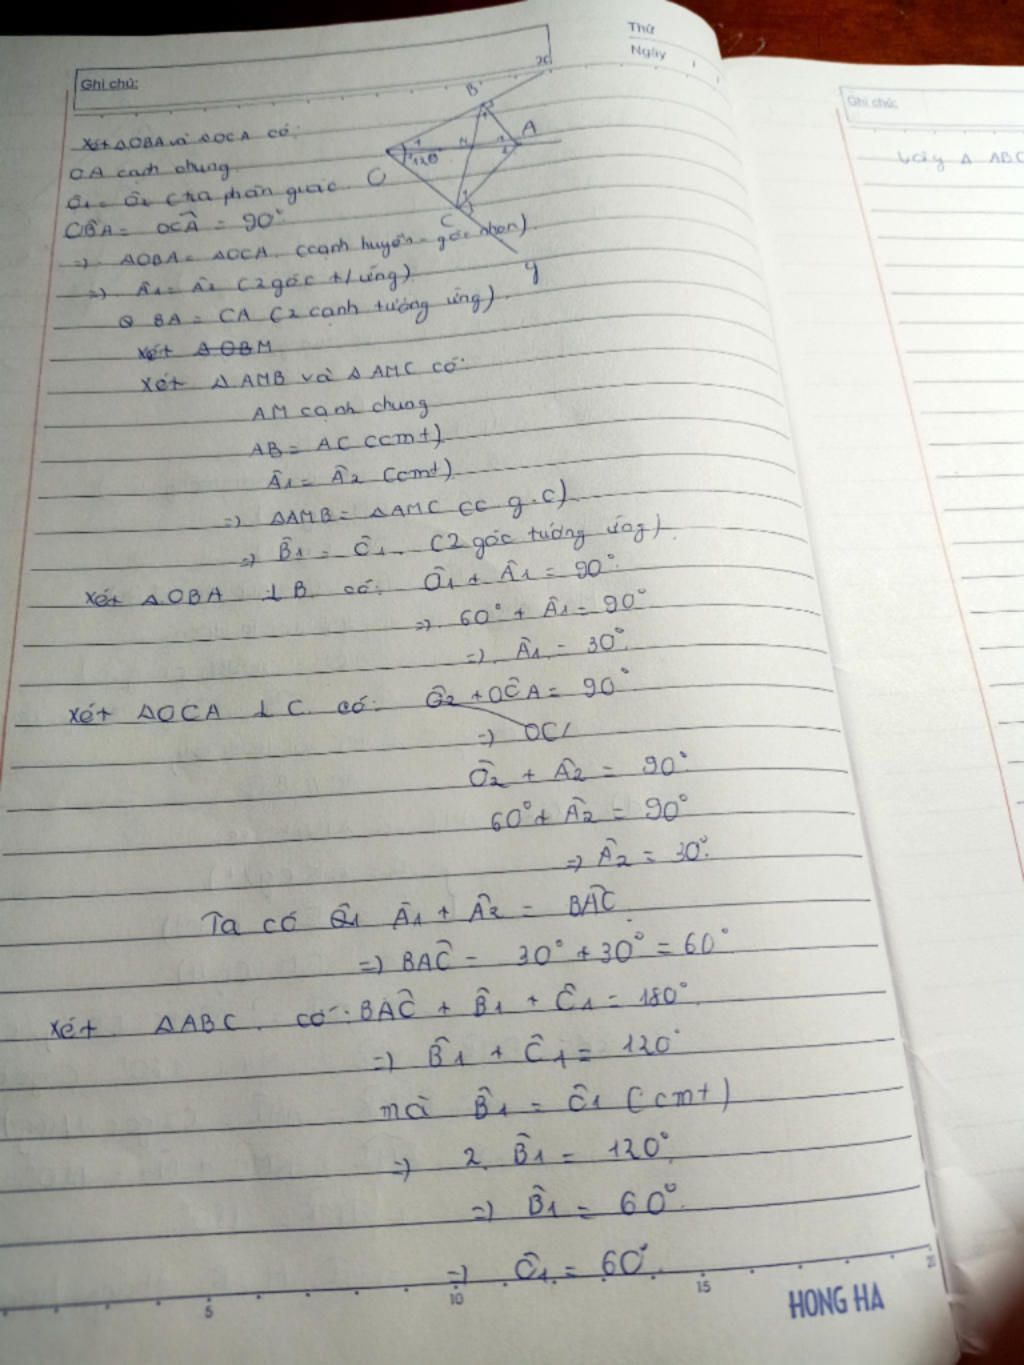 Thứ
Ngày
Ghi chú:
x
B
A
O
1
120
M
1
2
C
y
Xét ΔOBA và ΔOCA có:
OA cạnh chung
Ô1 = Ô2 (tia phân giác
OB̂A = OĈA = 90°
=> ΔOBA = ΔOCA (cạnh huyền - góc nhọn)
=> Â1 = Â2 (2 góc t/ứng)
BA = CA (2 cạnh tương ứng)
Xét ΔOBM
Xét ΔAMB và ΔAMC có:
AM cạnh chung
AB = AC (cmt)
Â1 = Â2 (cmt)
=> ΔAMB = ΔAMC (c.g.c)
=> B̂1 = Ĉ1 (2 góc tướng ứng)
Xét ΔOBA ⊥ B có: Ô1 + Â1 = 90°
=> 60° + Â1 = 90°
=> Â1 = 30°
Xét ΔOCA ⊥ C có: Ô2 + OĈA = 90°
=> OC
Ô2 + Â2 = 90°
60° + Â2 = 90°
=> Â2 = 30°
Ta có Â1 + Â2 = BÂC
=> BAĈ = 30° + 30° = 60°
Xét ΔABC có: BAĈ + B̂1 + Ĉ1 = 180°
=> B̂1 + Ĉ1 = 120°
mà B̂1 = Ĉ1 (cmt)
=> 2. B̂1 = 120°
=> B̂1 = 60°
=> Ĉ1 = 60°
5 10 15 20
HONG HA
Ghi chú:
Vậy Δ ABC